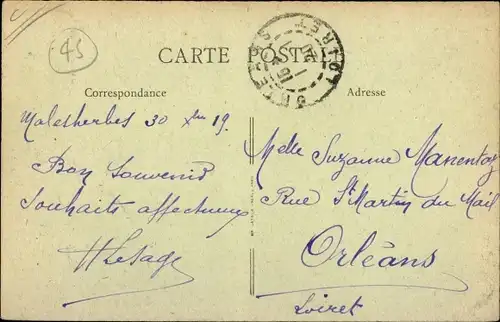 45
CARTE POSTALE
LOIRET
Correspondance
Adresse
Malesherbes 30 Xbre 19.
Bon Souvenir
Souhaits affectueux
HLesage
Melle Suzanne
Rue St Martin du Mail
Orléans
Loiret